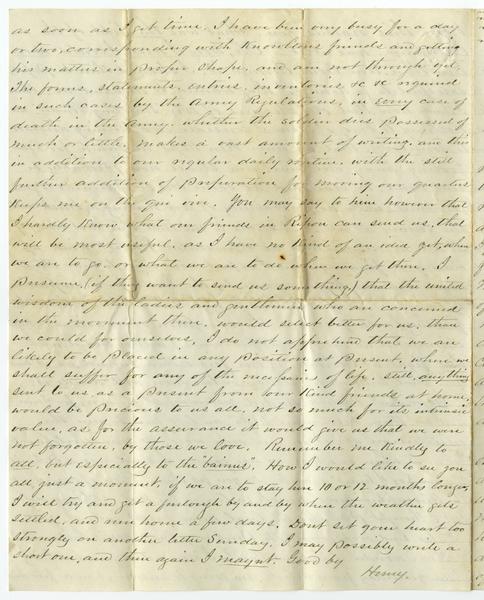 as soon as I get time. I have been very busy for a day
or two, corresponding with Knowltons friends and getting
his matters in proper shape, and am not through yet.
The forms, statements, entries, inventories &c &c required
in such cases by the Army Regulations, in every case of
death in the Army, whether the soldier dies possessed of
much or little, makes a vast amount of writing, and this
in addition to our regular daily routine, with the still
further addition of preparation for moving our quarters
keeps me on the qui vive. You may say to him however that
I hardly know what our friends in Ripon can send us, that
will be most useful, as I have no kind of an idea yet, when
we are to go, or what we are to do when we get there. I
presume, (if they want to send us something,) that the united
wisdom of the ladies and gentlemen who are concerned
in the movement there, would select better for us, than
we could for ourselves, I do not apprehend that we are
likely to be placed in any position at present, where we
shall suffer for any of the necessaries of life, still, anything
sent to us as a present from our kind friends at home,
would be precious to us all, not so much for its intrinsic
value, as for the assurance it would give us that we were
not forgotten, by those we love. Remember me kindly to
all, but especially to the "bairns". How I would like to see you
all just a moment, if we are to stay here 10 or 12 months longer,
I will try and get a furlough by and by when the weather gets
settled, and run home a few days. Dont set your heart too
strongly on another letter Sunday. I may possibly write a
short one, and then again I maynt. Good by
Henry.